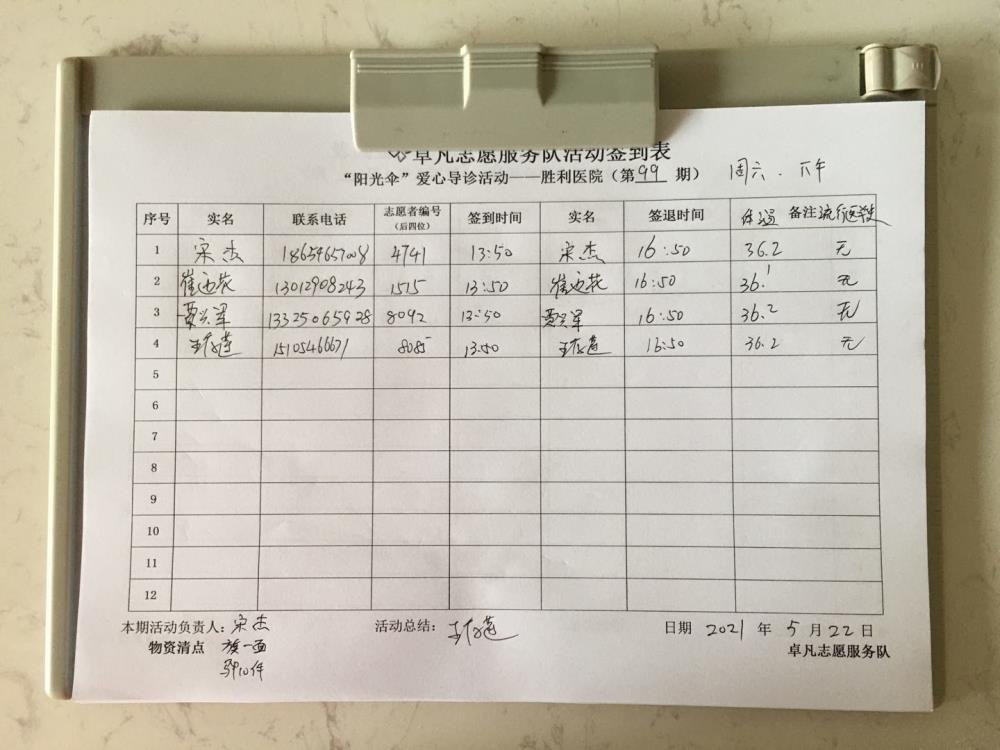 卓凡志愿服务队活动签到表
“阳光伞”爱心导诊活动——胜利医院（第99期） 周六.下午
序号 实名 联系电话 志愿者编号（后四位） 签到时间 实名 签退时间 体温 备注流行区接史
1 宋杰 18654657008 4741 13:50 宋杰 16:50 36.2 无
2 崔迎花 13012908243 1515 13:50 崔迎花 16:50 36.1 无
3 贾兴军 13325065928 8092 13:50 贾兴军 16:50 36.2 无
4 15105466671 8085 13:50 16:50 36.2 无
5
6
7
8
9
10
11
12
本期活动负责人：宋杰 活动总结： 日期 2021 年 5 月 22 日
物资清点 旗一面 卓凡志愿服务队